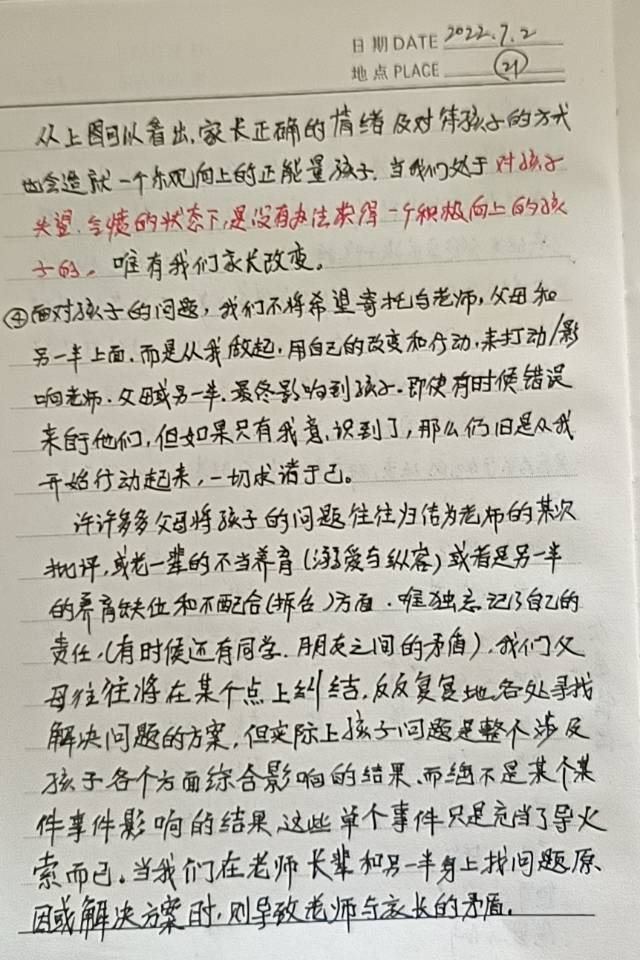 日期 DATE 2022.7.2
地点 PLACE 21
从上图可以看出,家长正确的情绪及对待孩子的方式
也会造就一个乐观向上的正能量孩子.当我们处于对孩子
失望.焦虑的状态下,是没有办法获得一个积极向上的孩
子的。唯有我们家长改变。
④面对孩子的问题,我们不将希望寄托与老师,父母和
另一半上面.而是从我做起,用自己的改变和行动,来打动/影
响老师.父母或另一半.最终影响到孩子.即使有时候错误
来自于他们,但如果只有我意识到了,那么仍旧是从我
开始行动起来,一切求诸于己。
许许多多父母将孩子的问题往往归结为老师的某次
批评,或老一辈的不当养育(溺爱与纵容)或者是另一半
的养育缺位和不配合(拆台)方面.唯独忘记了自己的
责任.(有时候还有同学.朋友之间的矛盾).我们父
母往往将在某个点上纠结,反反复复地各处寻找
解决问题的方案,但实际上孩子问题是整个涉及
孩子各个方面综合影响的结果.而绝不是某个某
件事件影响的结果.这些单个事件只是充当了导火
索而已.当我们在老师长辈和另一半身上找问题原
因或解决方案时,则导致老师与家长的矛盾.